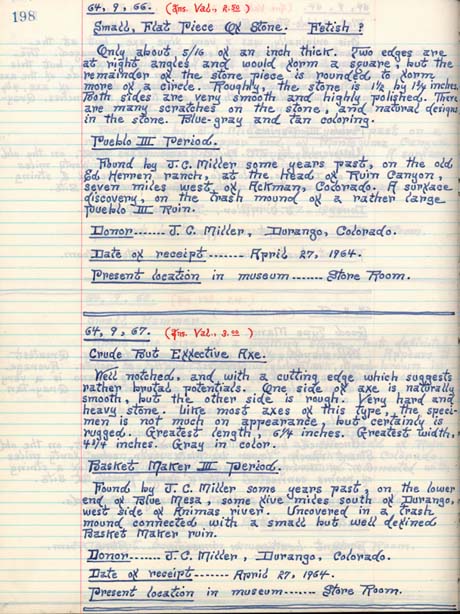 198
64, 9, 66. (Ins. Val., 2.50)
Small, Flat Piece Of Stone. Fetish?
Only about 5/16 of an inch thick. Two edges are
at right angles and would form a square, but the
remainder of the stone piece is rounded to form
more of a circle. Roughly, the stone is 1½ by 1¾ inches.
Both sides are very smooth and highly polished. There
are many scratches on the stone, and natural designs
in the stone. Blue-gray and tan coloring.
Pueblo III Period.
Found by J.C. Miller some years past, on the old
Ed Herren ranch, at the head of Ruin Canyon,
seven miles west of Ackman, Colorado. A surface
discovery, on the trash mound of a rather large
Pueblo III Ruin.
Donor----- J.C. Miller, Durango, Colorado.
Date of receipt------- April 27, 1964.
Present location in museum------ Store Room.
64, 9, 67. (Ins. Val., 3.00)
Crude But Effective Axe.
Well notched, and with a cutting edge which suggests
rather brutal potentials. One side of axe is naturally
smooth, but the other side is rough. Very hard and
heavy stone. Like most axes of this type, the speci-
men is not much on appearance, but certainly is
rugged. Greatest length, 6¼ inches. Greatest width,
4¼ inches. Gray in color.
Basket Maker III Period.
Found by J.C. Miller, some years past, on the lower
end of Blue Mesa, some five miles south of Durango,
west side of Animas river. Uncovered in a trash
mound connected with a small but well defined
Basket Maker ruin.
Donor------- J.C. Miller, Durango, Colorado.
Date of receipt------- April 27, 1964.
Present location in museum------ Store Room.